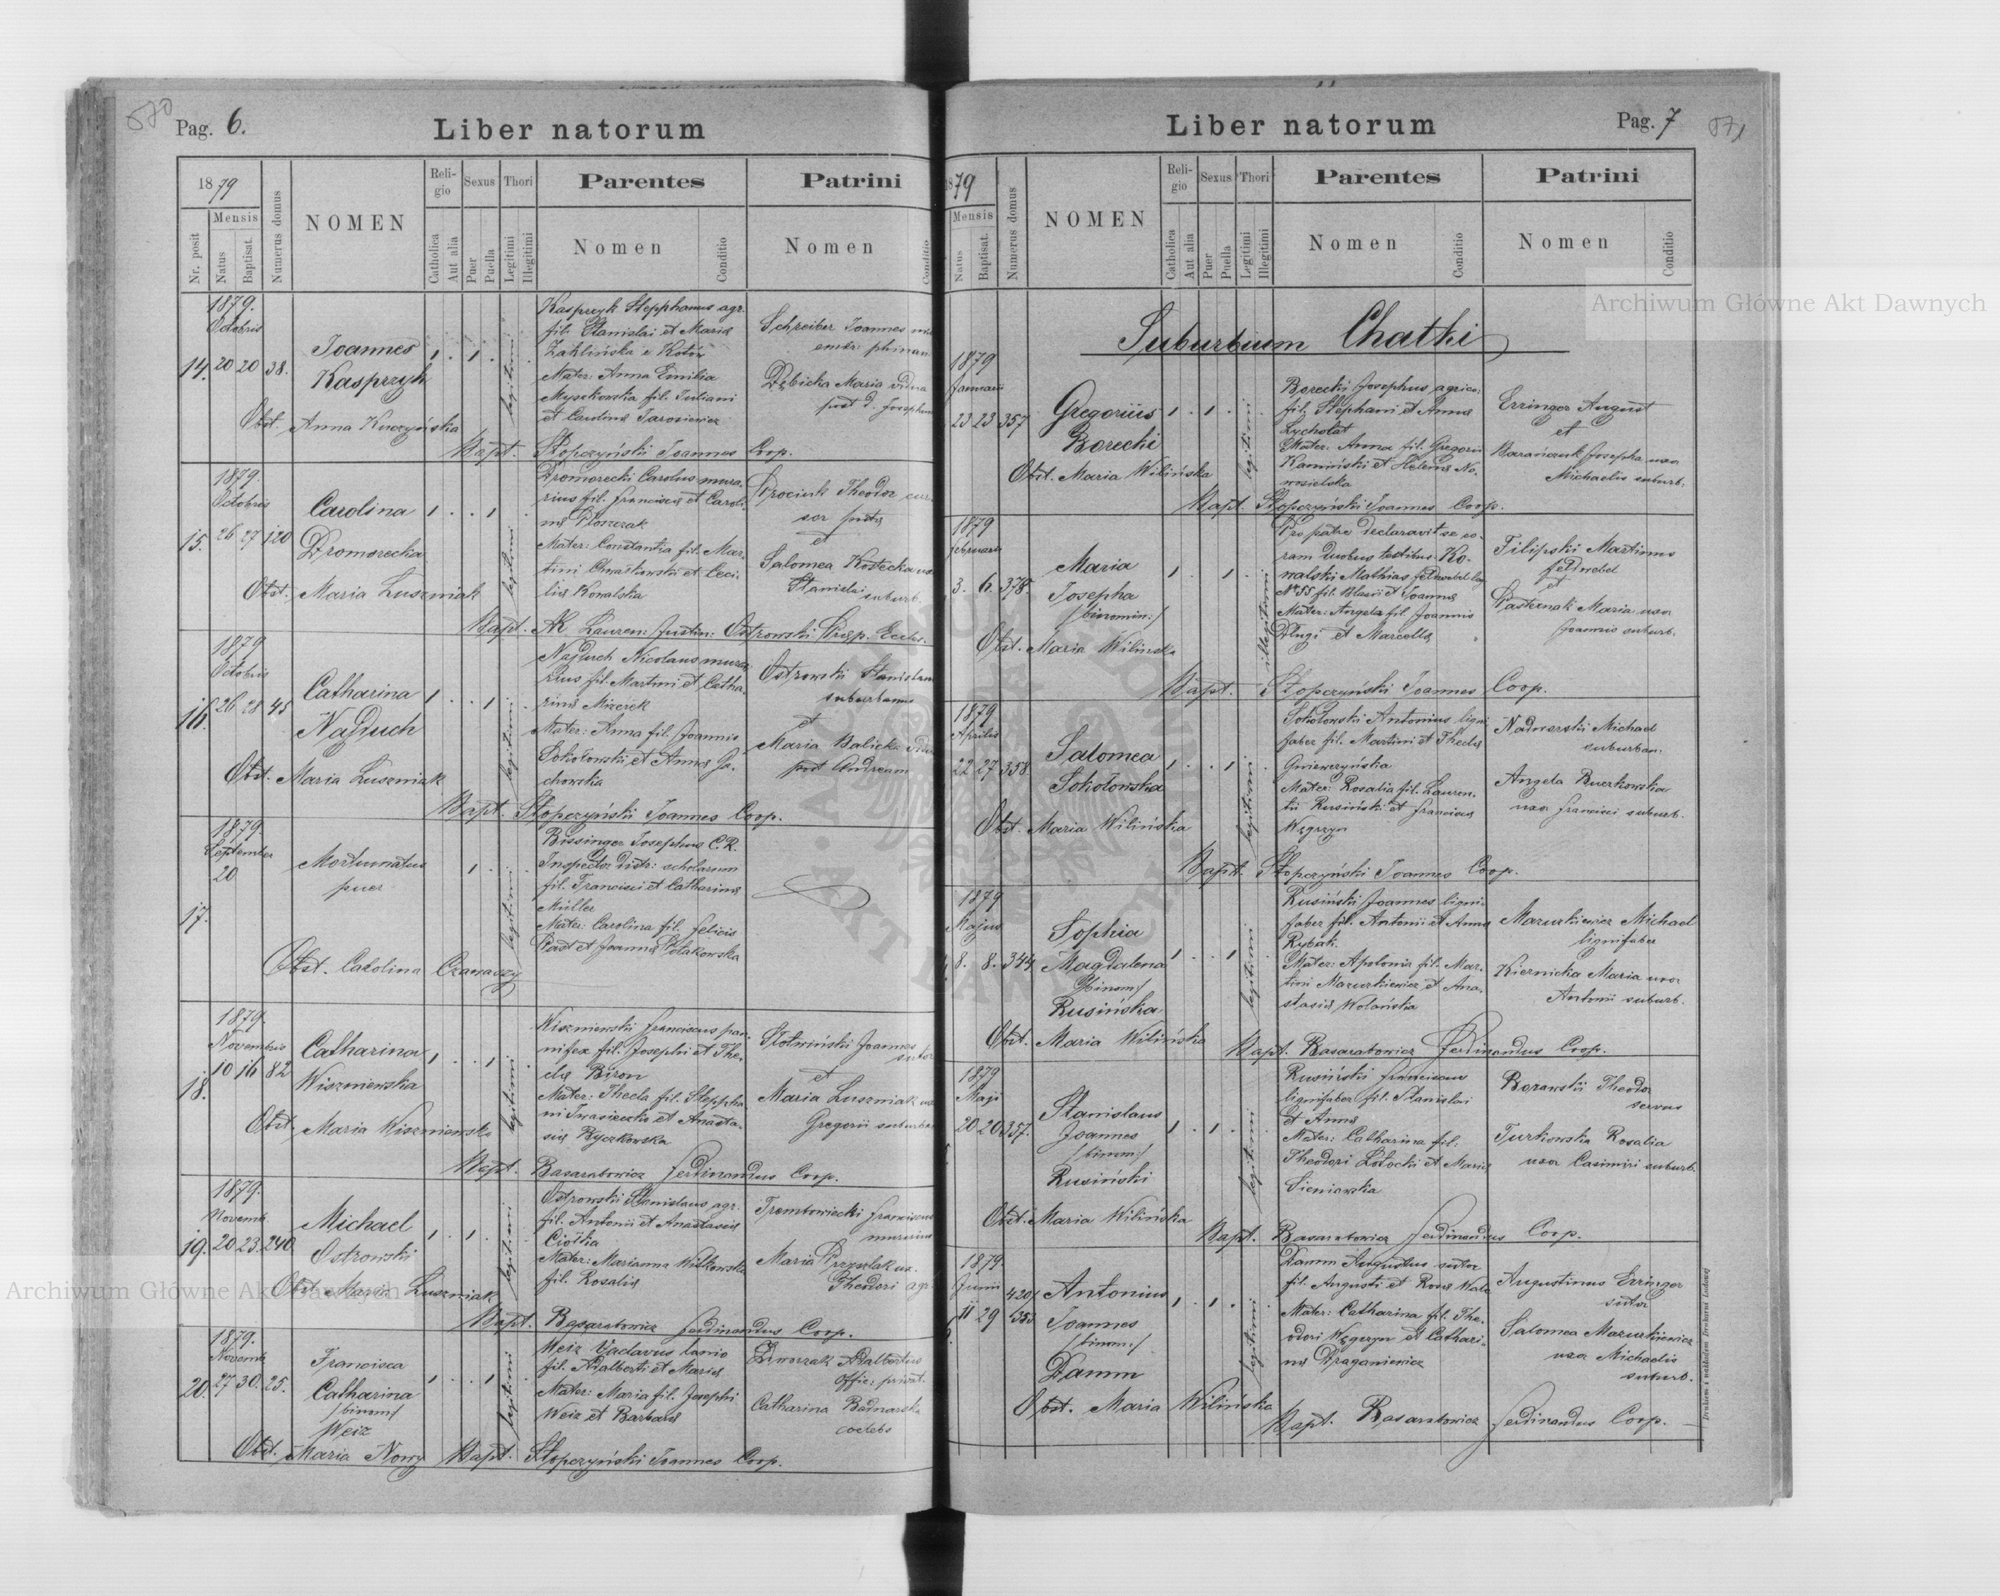 570
Pag. 6.
Liber natorum
1879
Nr. posit
Mensis
Natus
Baptisat.
Numerus domus
NOMEN
Reli-
gio
Catholica
Aut alia
Sexus
Puer
Puella
Thori
Legitimi
Illegitimi
Parentes
Nomen
Conditio
Patrini
Nomen
Conditio
1879.
Octobris
14. 20 20 38.
Joannes
Kasprzyk
1 . 1 .
legitimi
Kasprzyk Stepphanus agr.
fil. Stanislai et Maria
Zaklińska e Kotów
Mater: Anna Emilia
Myszkowska fil. Juliani
et Carolina Jarosiewicz
Schreiber Joannes
Dębicka Maria vidua
post d. Josephum
Obst. Anna Kuczyńska
Bapt. Stopczyński Joannes Coop.
1879
Octobris
15. 26 27 120
Carolina
Dromorecka
1 . . 1
legitimi
Dromorecki Carolus mura-
rius fil. Francisci et Caroli-
na
Mater: Constantia fil. Mar-
tini Chwastowski et Ceci-
lia Kowalska
Prociuk Theodor
et
Salomea Kostecka
Stanislai suburb.
Obst. Maria Luszniak
Bapt. Lauren: Justin: Ostrowski
1879
Octobris
16. 26 28 45
Catharina
Najduch
1 . . 1
legitimi
Najduch Nicolaus mura-
rius fil. Martini et Catha-
rina Mizerek
Mater: Anna fil. Joannis
Sokołowski et Anna Ja-
chowska
Ostrowski Stanislaus
suburbanus
et
Maria Balicka
post Andream
Obst. Maria Luszniak
Bapt. Stopczyński Joannes Coop.
1879.
September
20
17.
Mortuunatus
puer
1
legitimi
Bissinger Josephus C.R.
Inspector distr: scholarum
fil. Francisci et Catharina
Müller
Mater: Carolina fil. Felicis
et Joanna Polakowska
Obst. Carolina
1879.
Novembris
18. 10 16 82
Catharina
Wiszniewska
1 . . 1
legitimi
Wiszniewski Franciscus pan-
nifex fil. Josephi et The-
cla Biron
Mater: Thecla fil. Steppha-
ni Iwasieczko et Anasta-
sia Byczkowska
Słotwiński Joannes
sutor
et
Maria Luszniak
Gregorii suburban
Obst. Maria Wiszniewska
Bapt. Basarabowicz Ferdinandus Coop.
1879.
Novemb.
19. 20 23. 240.
Michael
Ostrowski
1 . 1 .
legitimi
Ostrowski Stanislaus agr.
fil. Antonii et Anastasia
Ciołka
Mater: Marianna Witkowska
fil. Rosalia
Trembowiecki Franciscus
murarius
Maria Przyszlak ux.
Theodori agr.
Obst. Maria Luszniak
Bapt. Basarabowicz Ferdinandus Coop.
1879.
Novemb.
20. 27 30. 25.
Francisca
Catharina
/binom:/
Weiz
1 . . 1
legitimi
Weiz Vaclavus lanio
fil. Adalberti et Maria
Mater: Maria fil. Josephi
Weiz et Barbara
Dworzak Adalbertus
offic: privat.
Catharina Bednarska
coelebs
Obst. Maria Nowy
Bapt. Stopczyński Joannes Coop.
Liber natorum
Pag. 7
571
1879
Mensis
Natus
Baptisat.
Numerus domus
NOMEN
Reli-
gio
Catholica
Aut alia
Sexus
Puer
Puella
Thori
Legitimi
Illegitimi
Parentes
Nomen
Conditio
Patrini
Nomen
Conditio
Suburbium Chatki
1879
Januarii
23 23 357
Gregorius
Borecki
1 . 1 .
legitimi
Borecki Josephus agrico:
fil. Stephani et Anna
Lycholat
Mater: Anna fil. Gregorii
Kamiński et Helena No-
wosielska
Erringer August
et
Barańczuk Josepha uxor
Michaelis suburb.
Obst. Maria Wilińska
Bapt. Stopczyński Joannes Coop.
1879
Februarii
3. 6. 378.
Maria
Josepha
/binomin:/
1 . 1 .
illegitimi
Pro patre declaravit se co-
ram duobus testibus Ko-
walski Mathias feldwebel
N° 55 fil. Blasii et Joanna
Mater: Angela fil. Joannis
Długi et Marcella
Filipski Martinus
feldwebel
et
Pasternak Maria uxor
Joannis suburb.
Obst. Maria Wilińska
Bapt. Stopczyński Joannes Coop.
1879
Aprilis
22 27 358
Salomea
Sokołowska
1 . . 1
legitimi
Sokołowski Antonius ligni-
faber fil. Martini et Thecla
Gniewczyńska
Mater: Rosalia fil. Lauren-
tii Rusiński et Francisca
Węgrzyn
Nadworski Michael
suburban.
Angela Burzkowska
uxor Francisci suburb.
Obst. Maria Wilińska
Bapt. Stopczyński Joannes Coop.
1879
Majus
8. 8. 344
Sophia
Magdalena
/binom:/
Rusińska
1 . . 1
legitimi
Rusiński Joannes ligni-
faber fil. Antonii et Anna
Rybak
Mater: Apolonia fil. Mar-
tini Mazurkiewicz et Ana-
stasia Wolańska
Mazurkiewicz Michael
lignifaber
Kiernicka Maria uxor
Antonii suburb.
Obst. Maria Wilińska
Bapt. Basarabowicz Ferdinandus Coop.
1879
Maji
20 20 357.
Stanislaus
Joannes
/binom:/
Rusiński
1 . 1 .
legitimi
Rusiński Franciscus
lignifaber fil. Stanislai
et Anna
Mater: Catharina fil:
Theodori Łotocki et Maria
Sieniawska
Borawski Theodor
servus
Turkowska Rosalia
uxor Casimiri suburb.
Obst. Maria Wilińska
Bapt. Basarabowicz Ferdinandus Coop.
1879
Junii
11 29 420/353
Antonius
Joannes
/binom:/
Damm
1 . 1 .
legitimi
Damm Augustus sutor
fil. Augusti et Rosa
Mater: Catharina fil. The-
odori Węgrzyn et Cathari-
na Draganiewicz
Augustinus Erringer
sutor
Salomea Mazurkiewicz
uxor Michaelis
suburb.
Obst. Maria Wilińska
Bapt. Basarabowicz Ferdinandus Coop.
Drukiem i nakładem Drukarni Ludowej
Archiwum Główne Akt Dawnych
Archiwum Główne Akt Dawnych